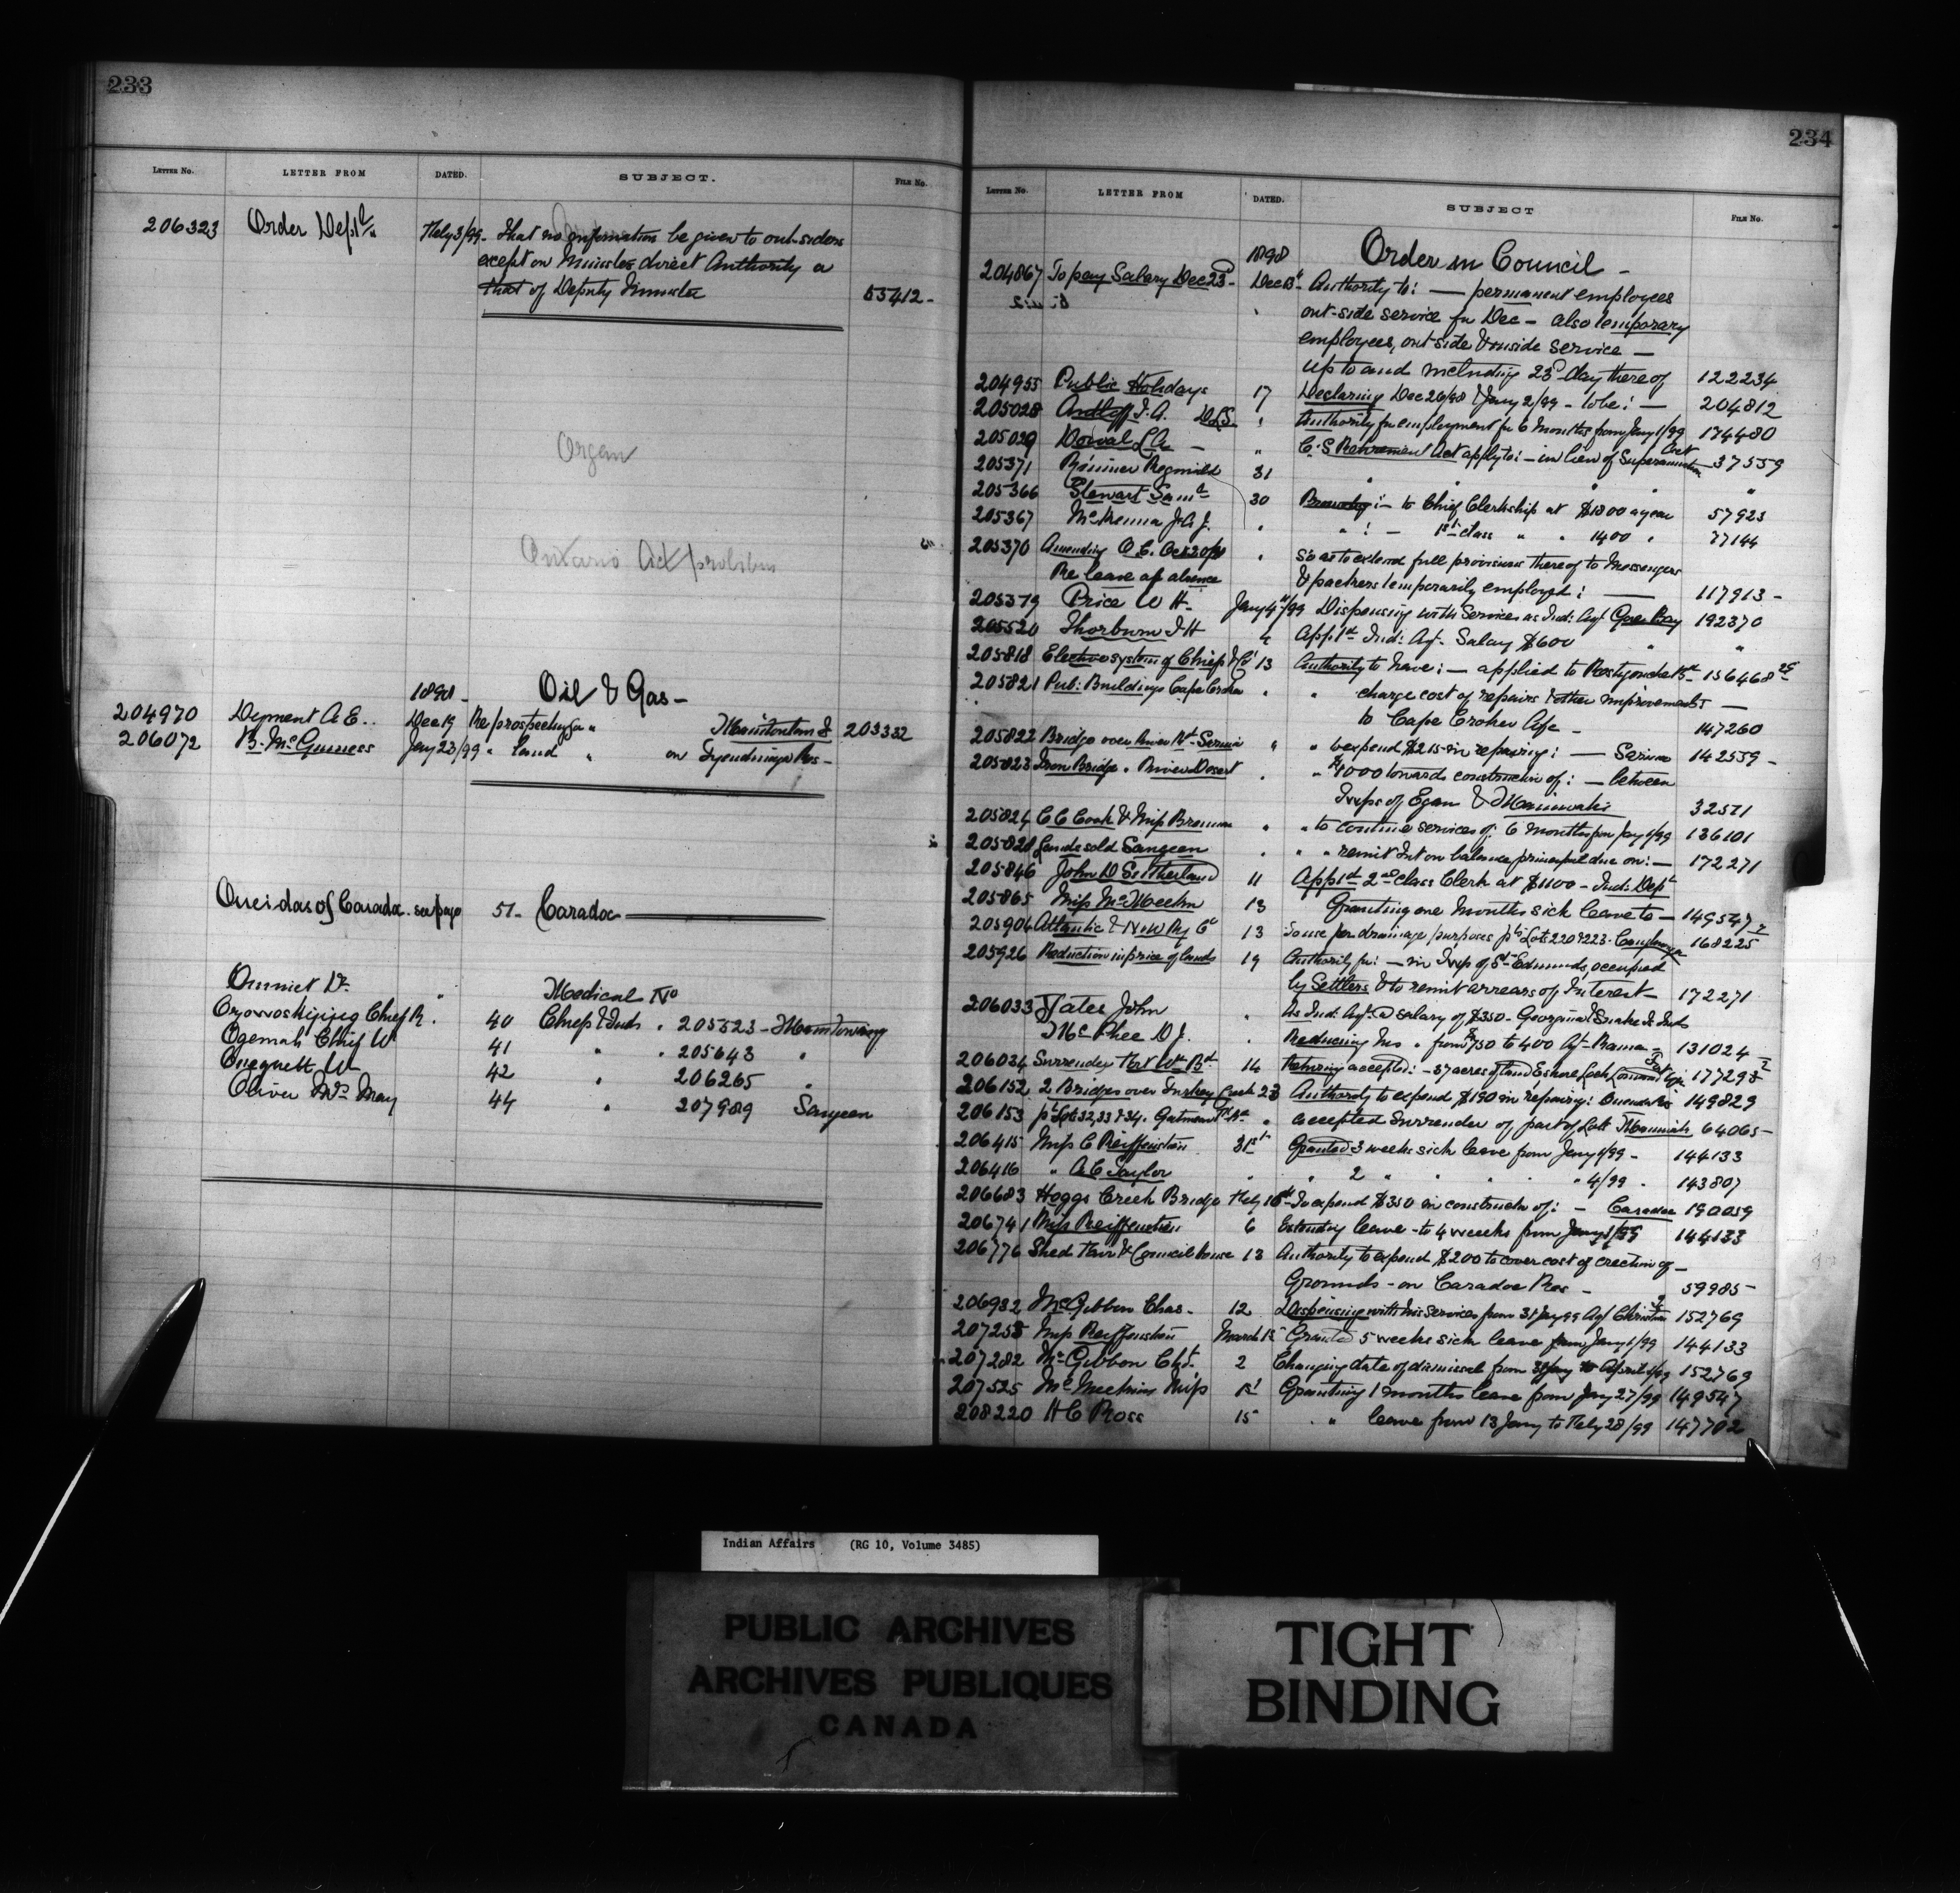 233
LETTER No. LETTER FROM DATED. SUBJECT. FILE No.
206323 Order Dept'l Feby 3/99 - That no information be given to out-siders
except on Minister direct Authority or
that of Deputy Minister 53412 -
Organ
Ontario Act
1898 - Oil & Gas -
204970 Dyment A E .. Dec 19 Re prospecting for " 203332
206072 B. McGuiness Jany 23/99 " land " on Tyendinaga Res -
Oneidas of Caradoc see page 51 - Caradoc
Dr. Medical No
Chief R. 40 Chiefs & Inds " 205523 -
Ogemah Chief W 41 " " 205643 "
W 42 " 206265 "
Oliver Mrs May 44 " 207989 Saugeen
234
LETTER No. LETTER FROM DATED. SUBJECT FILE No.
1898 Order in Council -
204867 To pay Salary Dec 23 - Dec 13 Authority to : — permanent employees
out-side service for Dec - also temporary
employees, out side & inside service —
up to and including 23 day there of 122234
204955 Public Holidays 17 Declaring Dec 26/98 & Jany 2/99 - to be : — 204812
205028 J. A. DLS " Authority for employment for 6 months from Jany 1/99 174480
205029 Dorval L A — " C. S Retirement Act apply to : — in lieu of Superannuation Act 37559
205371 Rimmer Reginald 31 " " " "
205366 Stewart Saml 30 Promoting : — to Chief Clerkship at $1800 a year 57923
205367 McKenna J. A J. " " : — 1st class " " 1400 " 77144
205370 Amending O. C. " So as to extend full provisions thereof to Messengers
Re leave of absence & packers temporarily employed : — 117913 -
205379 Price W H. Jany 4/99 Dispensing with Services as Ind: Agt Gore Bay 192370
205520 Thorburn J H 4 App'd Ind: Agt. Salary $600 " "
205818 Elective system of Chiefs & Co' 13 Authority to have : — applied to 156468
205821 Pub: Buildings Cape Croker " " charge cost of repairs & other improvements —
to Cape Croker Agc - 147260
205822 Bridge over River Rd - Sarnia " " to expend $215 in repairing : — Sarnia 142559 -
205823 Iron Bridge " River Desert " " $1000 towards construction of : — between
Twps of Egan & Maniwaki 32571
205824 C C Cook & Miss Brennan " " to continue services of 6 months from Jany 1/99 136101
205828 Lands sold Saugeen " " " remit Int on balance principal due on : — 172271
205846 John D Sutherland 11 App'd 2nd class Clerk at $1100 - Ind: Dept
205865 Miss 13 Granting one months sick leave to — 149547
205904 Atlantic & N W Ry Co 13 To use for drainage purposes pts Lots 220 & 223. 168225
205926 Reduction in price of lands 19 Authority for : — in Twp of St Edmunds, occupied
by Settlers & to remit arrears of Interest — 172271
206033 Yates John " As Ind: Agt. @ salary of $350 - Georgina & Snake Is Inds
McPhee D J. " Reducing his " from $750 to 400 Agt - Rama - 131024
206034 Surrender 14 accepted : — 37 acres of land E shore Loch Lomond 177298
206152 2 Bridges over Turkey Creek 23 Authority to expend $190 in repairing: Oneida Res 149829
206153 pts Lots 32, 33 & 34. " accepted surrender of part of Lots 64065 -
206415 Miss C Reiffenstein 31st Granted 3 weeks sick leave from Jany 1/99 - 144133
206416 " A C Taylor " " 2 " " " " " 4/99 - 143807
206683 Hoggs Creek Bridge Feby 10 To expend $350 in construction of : — Caradoc 190059
206741 Miss Reiffenstein 6 Extending leave - to 4 weeks from Jany 1/99 144133
206776 Shed & Council house 13 Authority to expend $200 to cover cost of erection of —
Grounds - on Caradoc Res - 59985 -
206982 McGibbon Chas. 12 Dispensing with his services from 31 Jany 99 Agt 152769
207258 Miss Reiffenstein March 15 Granted 5 weeks sick leave from Jany 1/99 144133
207282 McGibbon Chs. 2 Changing date of dismissal from 31 Jany to April 1/99 152769
207525 Miss Granting 1 months leave from Jany 27/99 149547
208220 H C Ross 15 " leave from 13 Jany to Feby 28/99 147702
Indian Affairs (RG 10, Volume 3485)
PUBLIC ARCHIVES
ARCHIVES PUBLIQUES
CANADA
TIGHT
BINDING